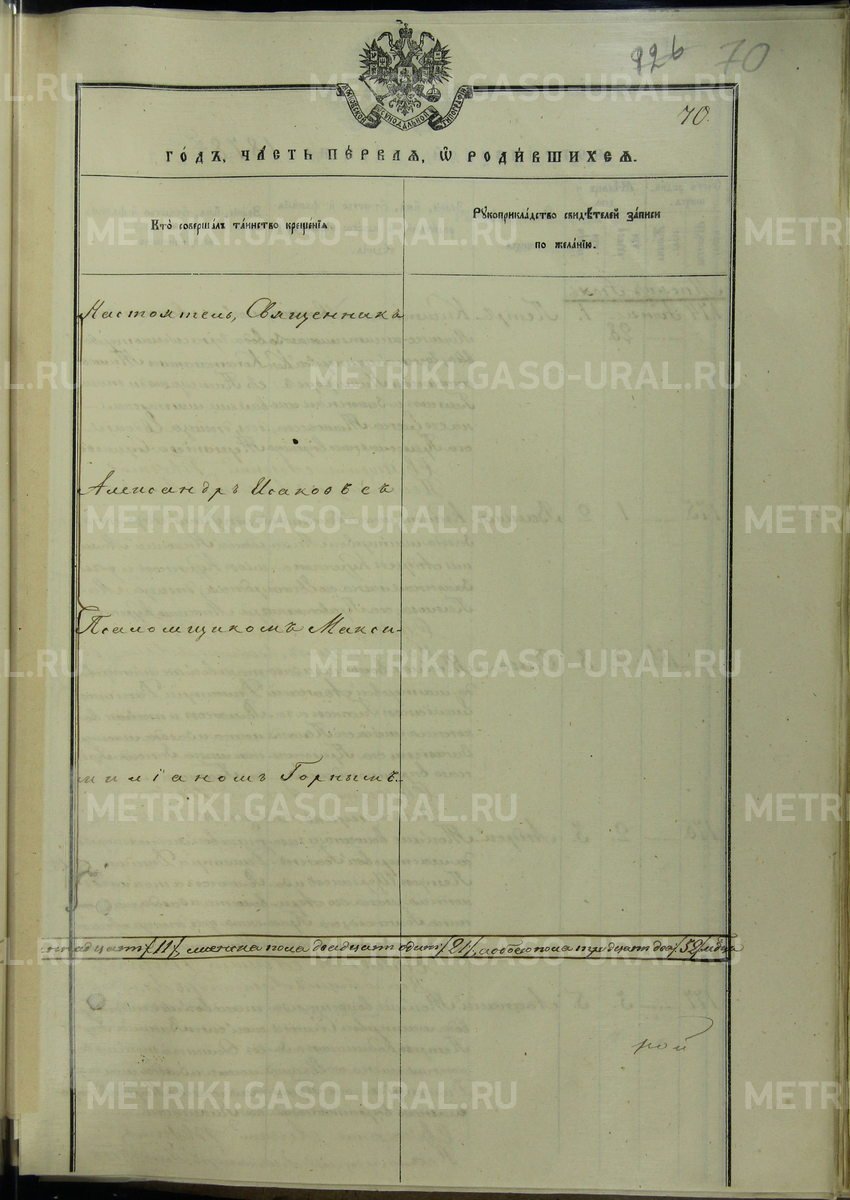 926 70
МОСКОВСКОЙ СУНОДАЛЬНОЙ ТИПОГРАФІИ
70.
ГО́ДЪ, ЧА́СТЬ ПЕ́РВАЯ, Ѡ҆ РОДИ́ВШИХСЯ.
Кто̀ соверша́лъ та́инство креще́нїя.
Рꙋкоприкла́дство свидѣ́телей за́писи
по жела́нїю.
Настоятель, Священникъ
Александръ Исаковъ съ
Псаломщикомъ Макси-
миліаномъ Горнымъ.
надцать /11/, женска пола двадцать один /21/, обоего пола тридцать два /32/
рой
METRIKI.GASO-URAL.RU